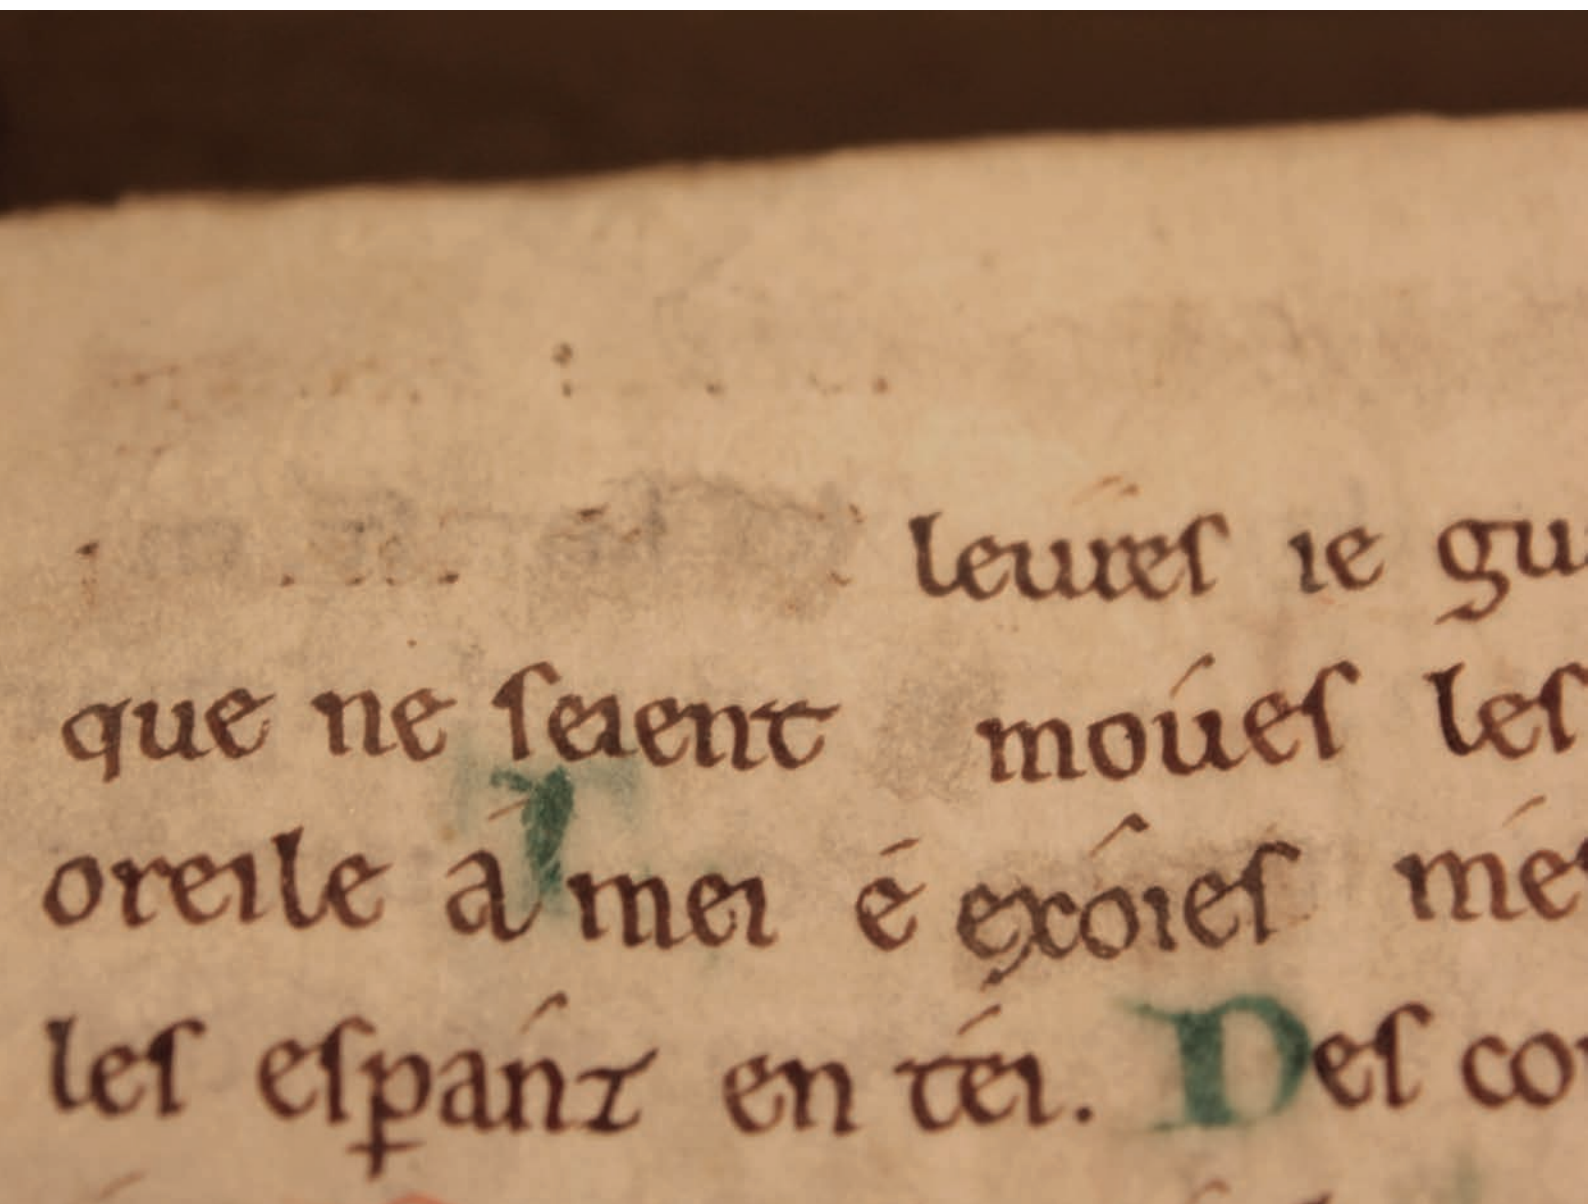 leures ie gu
que ne seient moúes les
oreile á mei é exóies mé
les espánz en téi. Des co